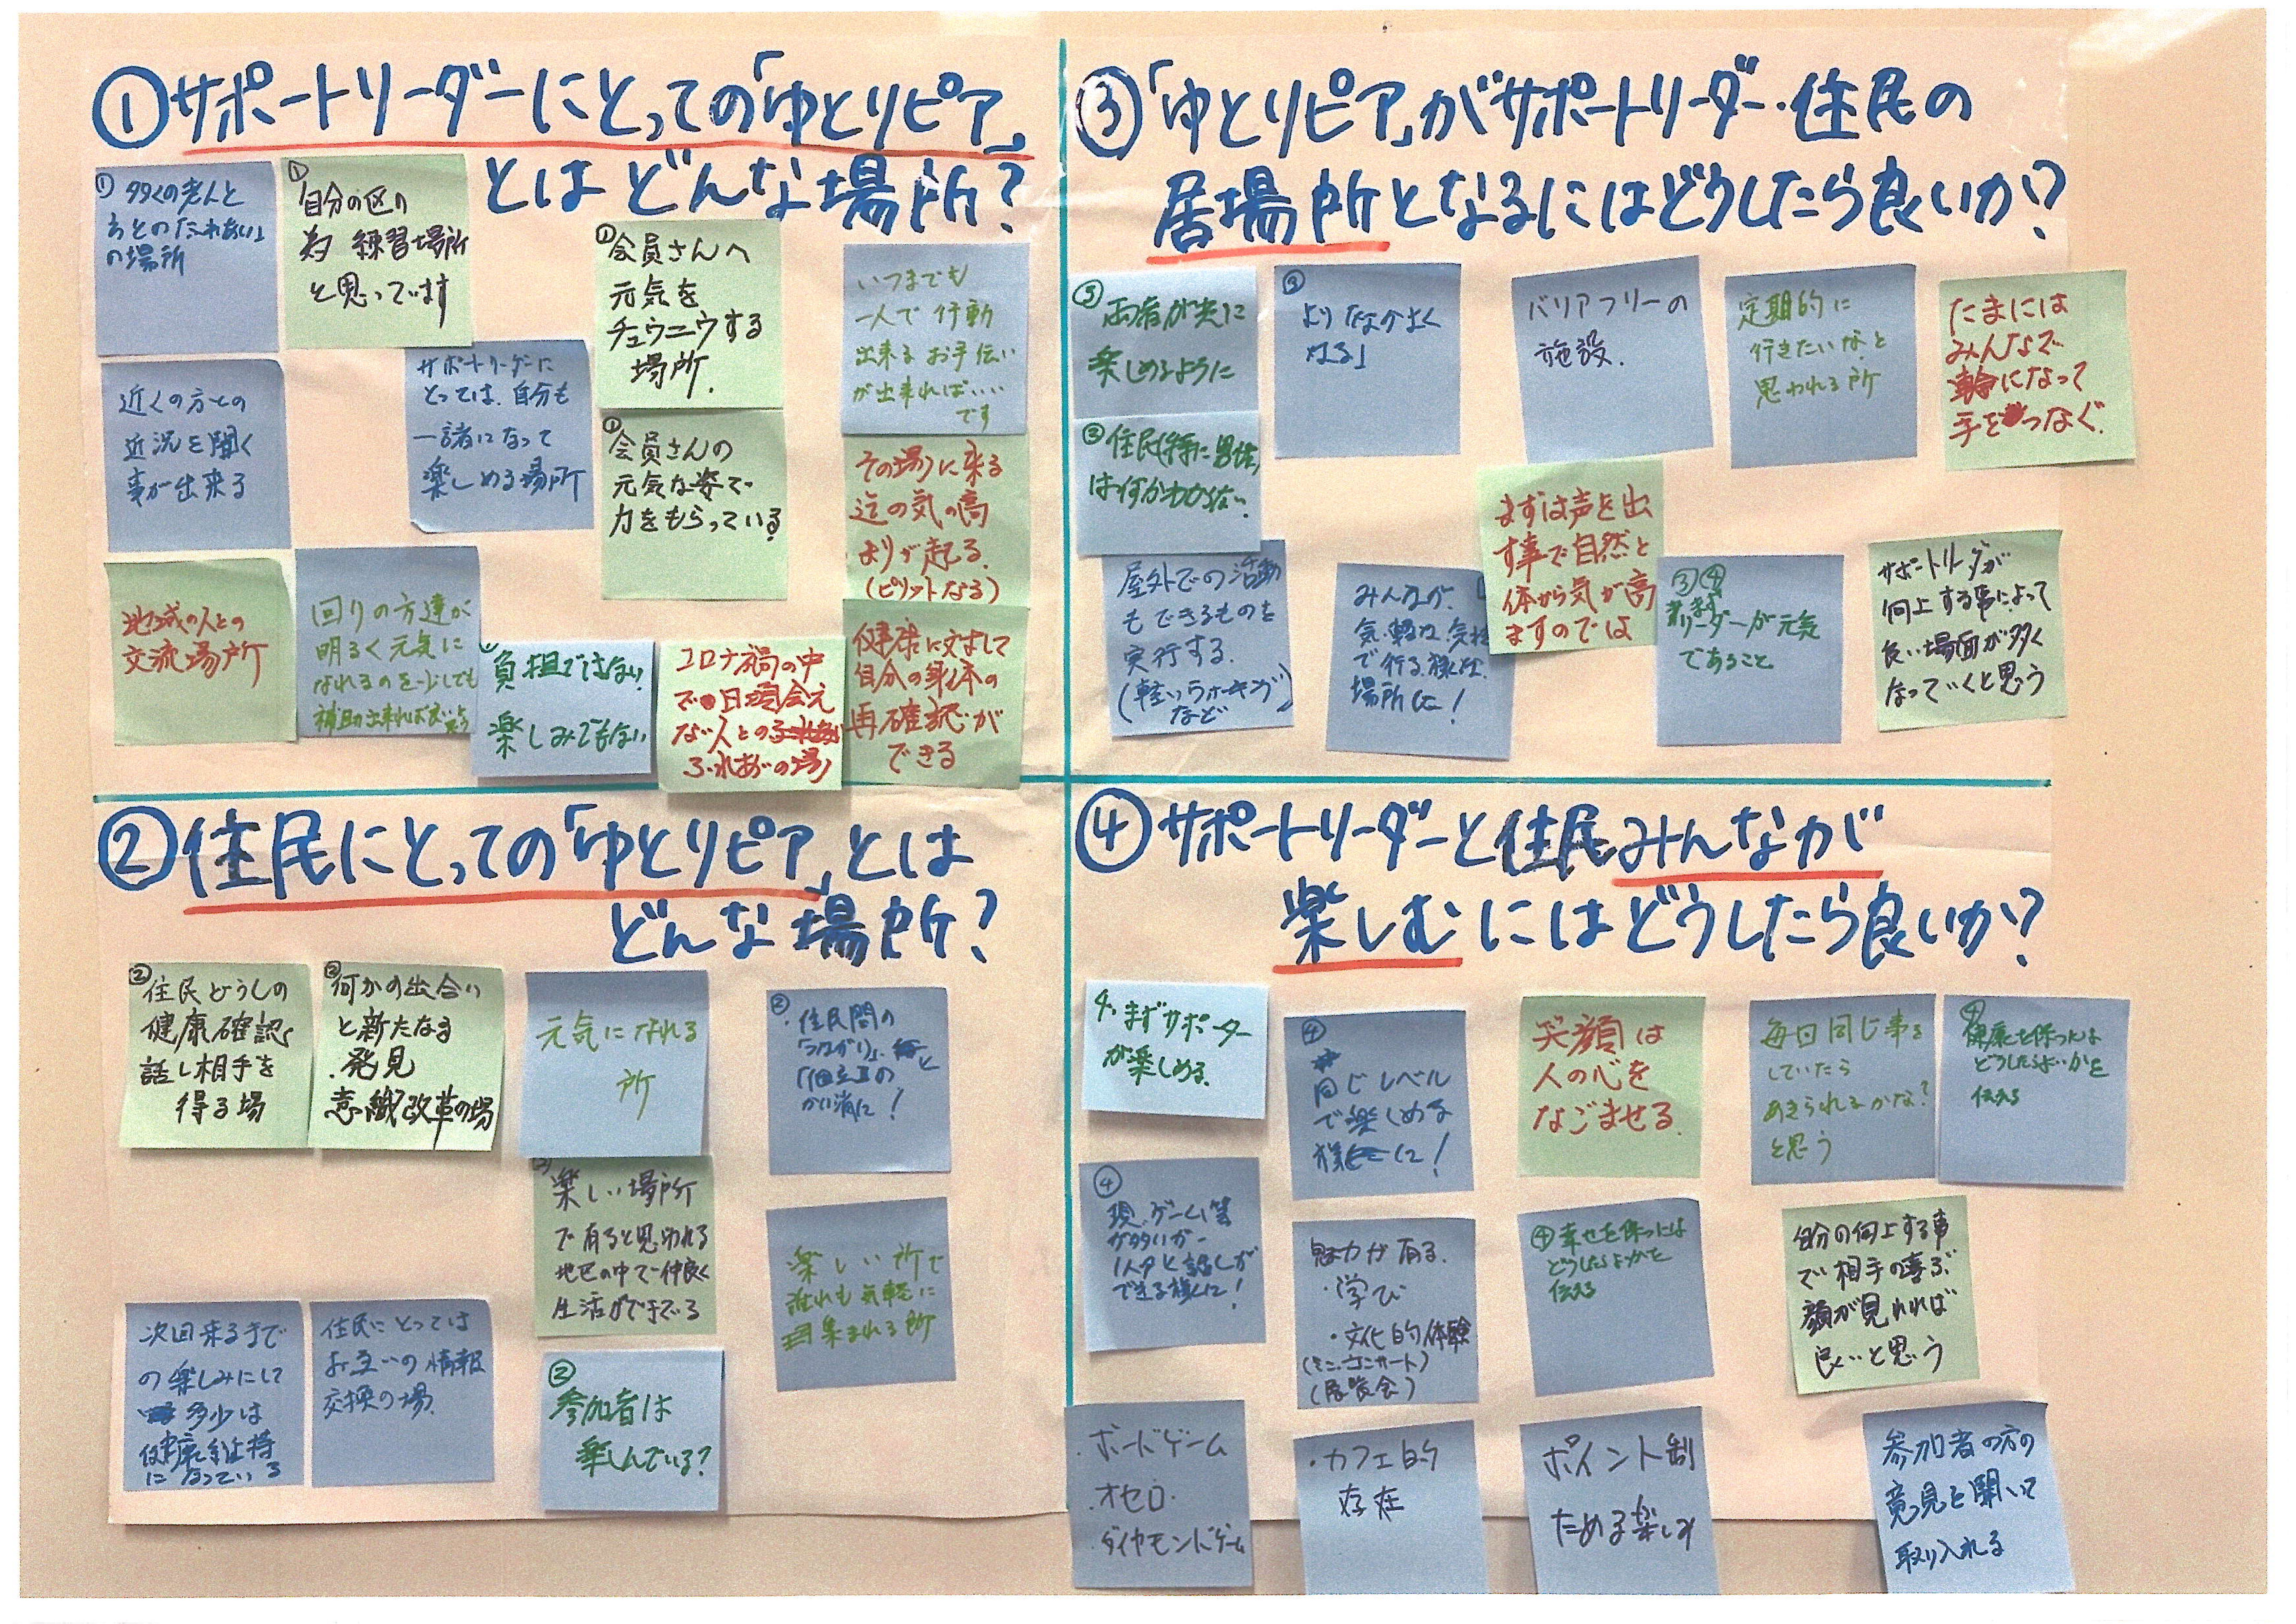 ①サポートリーダーにとっての「ゆとりピア」
とはどんな場所?
① 多くの老人と
の場所
①
自分の区の
為 練習場所
と思っています
①会員さんへ
元気を
チュウニウする
場所.
いつまでも
一人で行動
出来るお手伝い
が出来ればいい
です
近くの方との
近況を聞く
事が出来る
サポートリーダーに
とっては、自分も
一諸になって
楽しめる場所
①会員さんの
元気な姿で
力をもらっている
その場に来る
迄の気の高
まりが起る.
(ピリットなる)
地域の人との
交流場所
回りの方達が
明るく元気に
なれるのを少しでも
補助出来れば良い
負担ではない.
楽しみでもない
コロナ禍の中
で日頃会え
ない人との
ふれあいの場
健康に対して
自分の身体の
再確認が
できる
②住民にとっての「ゆとりピア」とは
どんな場所?
②住民どうしの
健康確認
話し相手を
得る場
②何かの出合い
と新たなる
発見
意織改革の場
元気になれる
所
②
・住民間の
「つながり」、と
「孤立」の
かい消に!
楽しい場所
で有ると思われる
地区の中で仲良く
生活ができてる
楽しい所で
誰れも気軽に
集まれる所
次回来るまで
の楽しみにして
多少は
健康維持
になっている
住民にとっては
お互いの情報
交換の場.
②
参加者は
楽しんでいる?
③「ゆとりピア」がサポートリーダー・住民の
居場所となるにはどうしたら良いか?
③
両者が共に
楽しめるように
③
より「なかよく
なる」
バリアフリーの
施設.
定期的に
行きたいなと
思われる所
たまには
みんなで
輪になって
手をつなぐ.
③住民(特に男性)
は何かわからない.
まずは声を出
す事で自然と
体から気が高
ますのでは
屋外での活動
もできるものを
実行する.
(軽いウォーキング)
など
みんなが、
気軽な気持
で行る様な
場所に!
③④
まずリーダーが元気
であること
サポートリーダが
向上する事によって
良い場面が多く
なっていくと思う
④サポートリーダーと住民みんなが
楽しむにはどうしたら良いか?
4、まずサポーター
が楽しめる.
④
同じレベル
で楽しめる
様に!
笑顔は
人の心を
なごませる.
毎回同じ事を
していたら
あきられるかな?
と思う
④
健康を保つには
どうしたらよいかを
伝える
④
現、ゲーム等
が多いが、
1人々と話しが
できる様に!
魅力が有る.
・学び
・文化的体験
(ミニコンサート)
(展覧会)
④幸せを保つには
どうしたらよいかを
伝える
自分の向上する事
で相手の喜ぶ
顔が見れれば
良いと思う
・ボードゲーム
・オセロ・
・ダイヤモンドゲーム
・カフェ的
存在
ポイント制
ためる楽しみ
参加者の方の
意見を聞いて
取り入れる